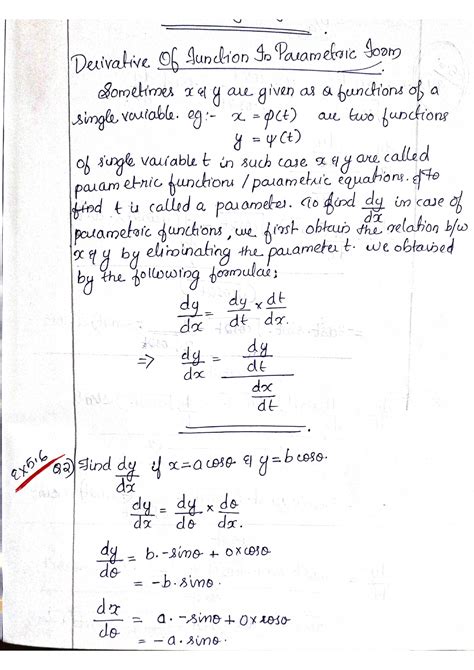 Derivative Of Function In Parametric Form
Sometimes x & y are given as a functions of a
single variable. eg:- x = φ(t) are two functions
y = ψ(t)
of single variable t in such case x & y are called
parametric functions / parametric equations. &
find t is called a parameter. To find dy/dx in case of
parametric functions, we first obtain the relation b/w
x & y by eliminating the parameter t. we obtained
by the following formulae;
dy/dx = dy/dt × dt/dx.
⇒ dy/dx = dy/dt / dx/dt
Ex 5.6 Q2) Find dy/dx if x = a cosθ & y = b cosθ.
dy/dx = dy/dθ × dθ/dx.
dy/dθ = b. -sinθ + 0 x cosθ
= -b. sinθ.
dx/dθ = a. -sinθ + 0 x cosθ
= -a. sinθ.